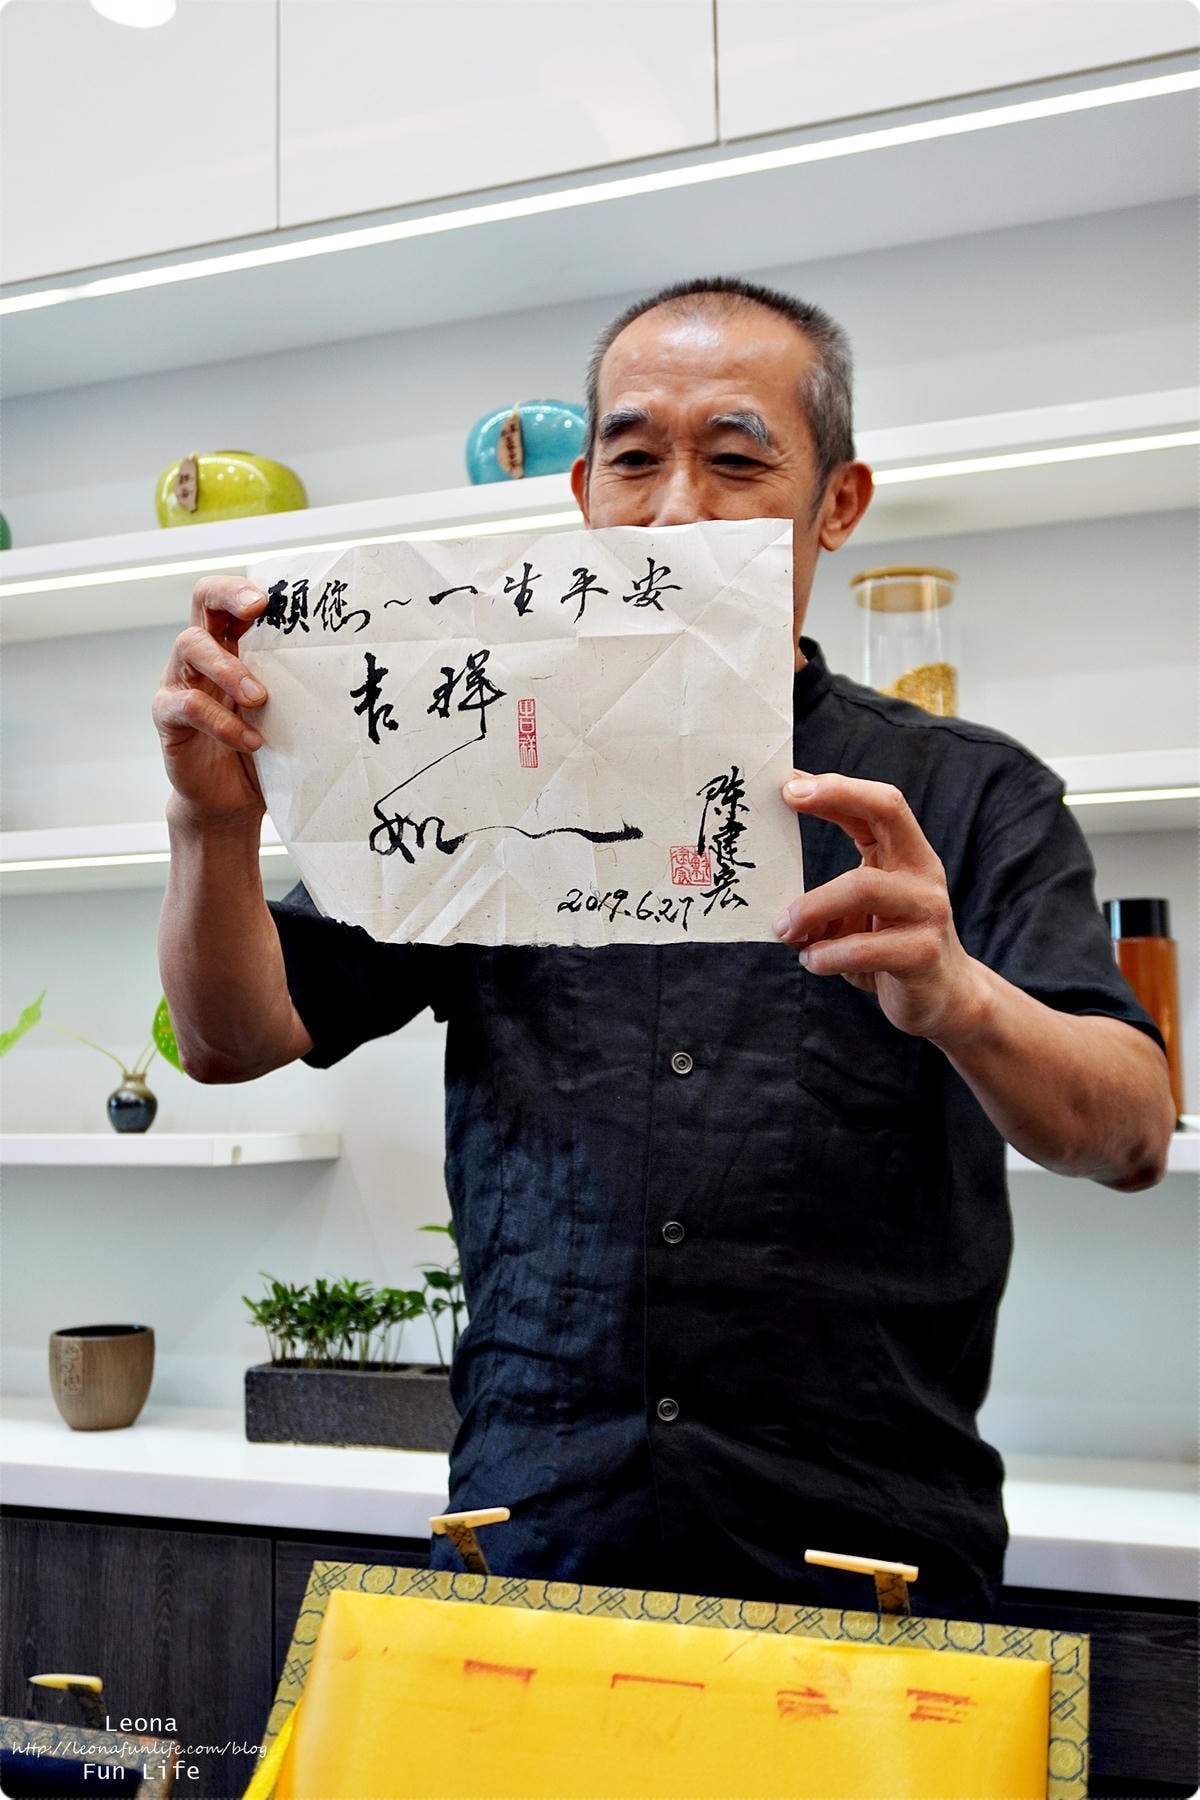 願您~一生平安
吉祥
如
陳建宏
2019.6.27
Leona
http://leonafunlife.com/blog
Fun Life